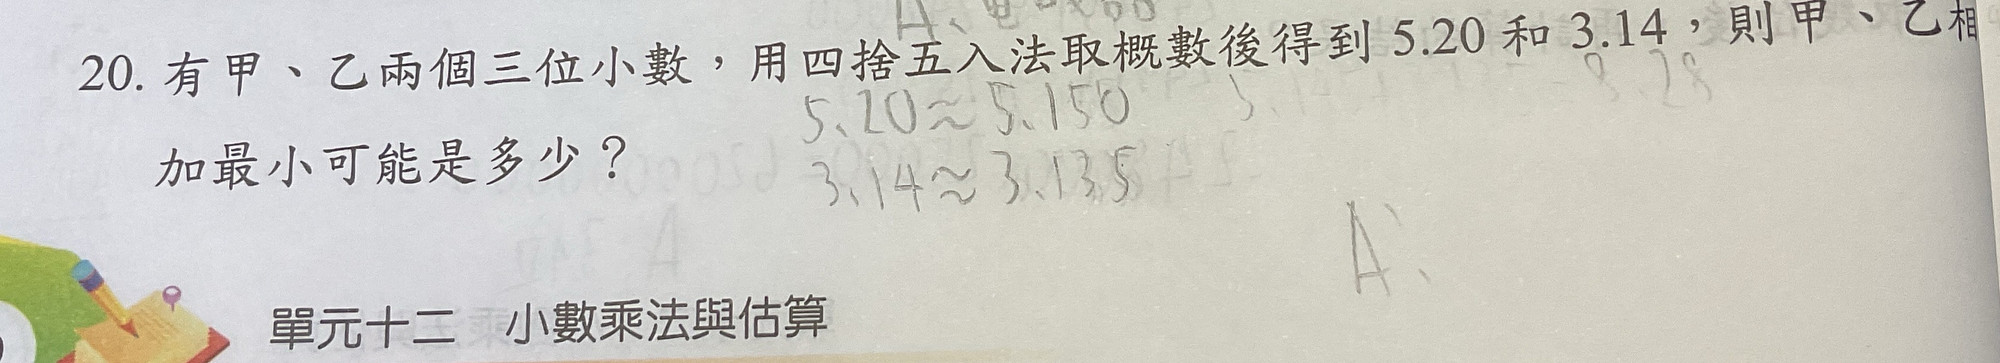 20. 有甲、乙兩個三位小數，用四捨五入法取概數後得到 5.20 和 3.14，則甲、乙相
5.20≈5.150
加最小可能是多少？
3.14≈3.135
A:
單元十二 小數乘法與估算